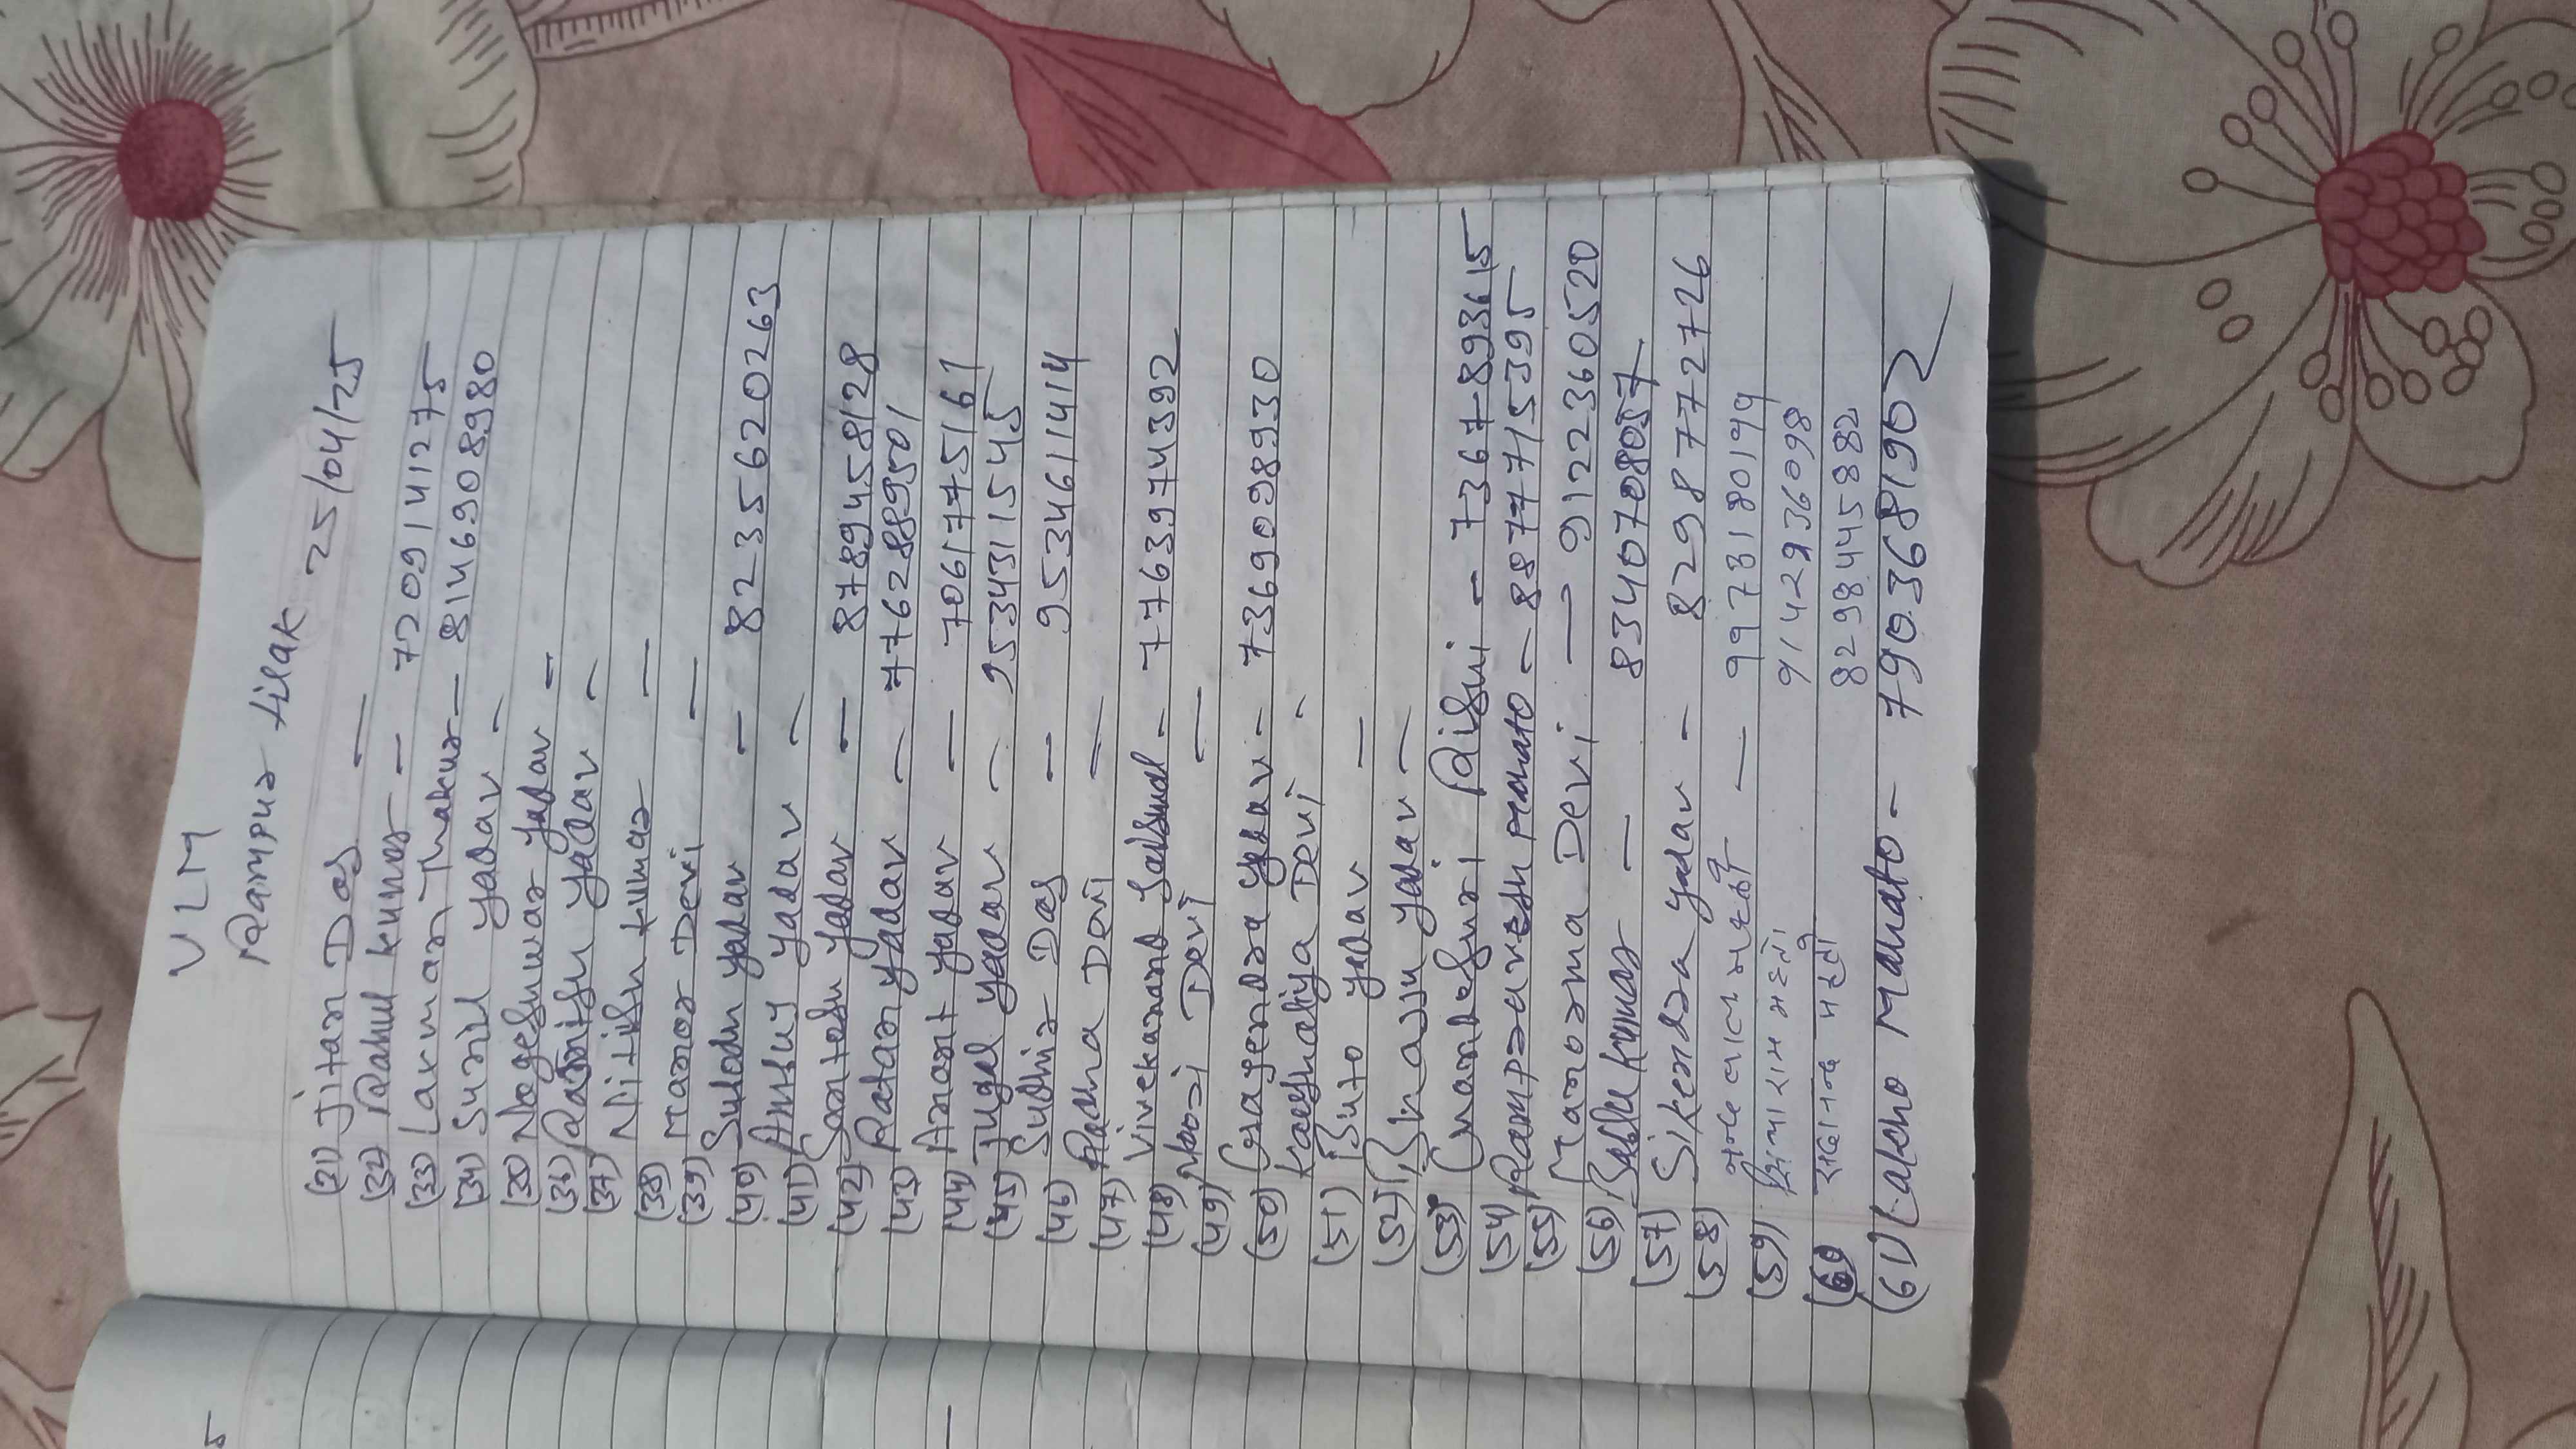 VLM
Rampur tilak 25/04/25
(31) Jitan Das —
(32) Rahul kumar — 7209141275
(33) Laxman Thakur — 8146908980
(34) Sunil yadav -
(35) Nageshwar yadav -
(36) Ranjish yadav -
(37) Nitish kumar —
(38)
(39) Manor Devi —
(40) Sulochn yadav — 8235620263
(41) Anshuj yadav -
(42) Santosh yadav — 8789458128
(43) Ratan yadav — 7762889501
(44) Anant yadav — 7061775161
(45) Jugal yadav — 9534311545
(46) Sudhir Das — 9534611414
(47) Radha Devi —
(48) Vivekanand Jaiswal - 7763974392
(49) Devi —
(50) Gragendra yadav - 7369098930
Kaushaliya Devi -
(51) Buto yadav —
(52) yadav —
(53) Chandeshuri Rishi - 7367893615
(54) Rampravesh mahato - 8877715395
(55) Manorma Devi — 9122360520
(56) Bablu kumar — 8340708057
(57) Sikendra yadav - 8298772726
(58) — 9973180199
(59) सियाराम महतो 9142936098
(60) सदानन्द महतो 8298445882
(61) Lakho Mahato - 7903681902